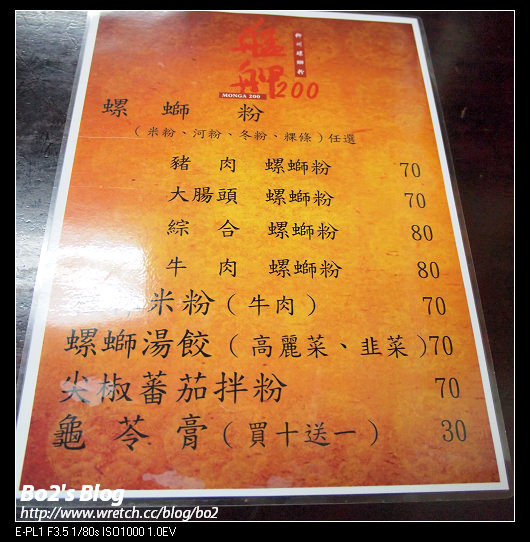 艋舺200
柳州螺螄粉
MONGA 200
螺螄粉
(米粉、河粉、冬粉、粿條)任選
豬肉 螺螄粉 70
大腸頭 螺螄粉 70
綜合 螺螄粉 80
牛肉 螺螄粉 80
米粉(牛肉) 70
螺螄湯餃(高麗菜、韭菜)70
尖椒蕃茄拌粉 70
龜苓膏(買十送一) 30
Bo2's Blog
http://www.wretch.cc/blog/bo2
E-PL1 F3.5 1/80s ISO1000 1.0EV